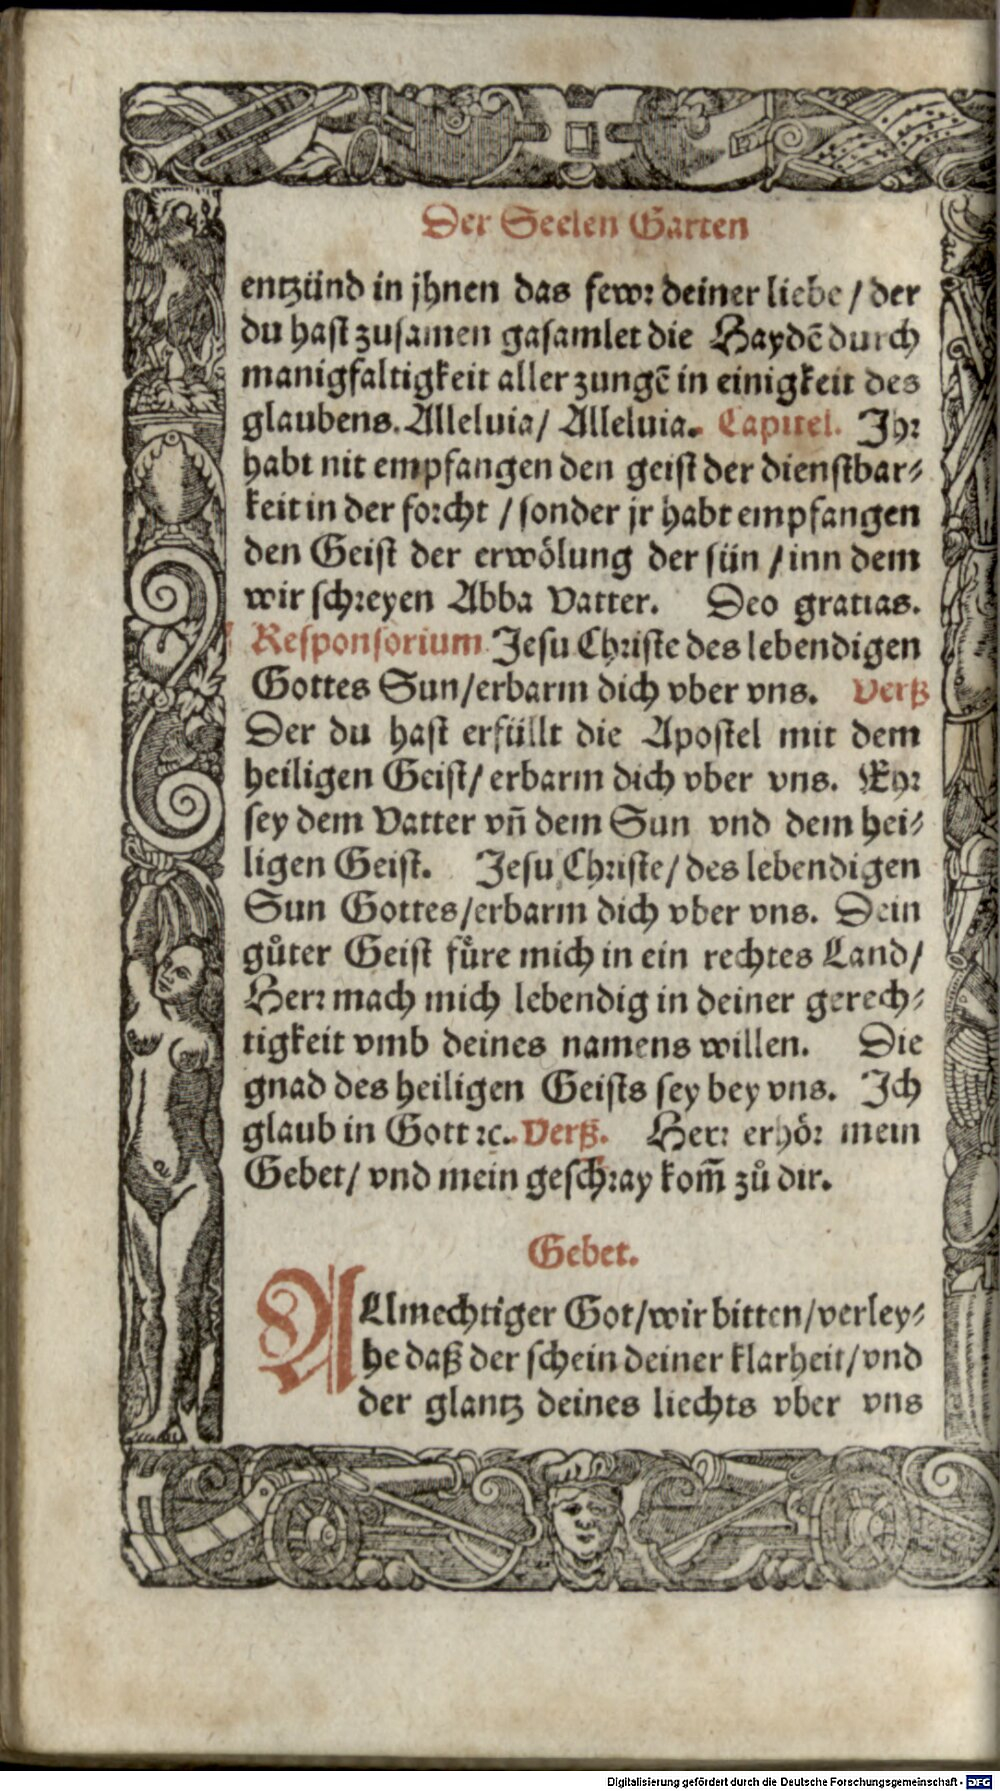 Der Seelen Garten
entzünd in jhnen das fewr deiner liebe / der
du hast zusamen gasamlet die Haydē durch
manigfaltigkeit aller zungē in einigkeit des
glaubens. Alleluia/ Alleluia. Capitel. Jhr
habt nit empfangen den geist der dienstbar⸗
keit in der forcht / sonder jr habt empfangen
den Geist der erwölung der sün / inn dem
wir schreyen Abba Vatter. Deo gratias.
Responsorium Jesu Christe des lebendigen
Gottes Sun/erbarm dich vber vns. Verß
Der du hast erfüllt die Apostel mit dem
heiligen Geist/ erbarm dich vber vns. Ehr
sey dem Vatter vn̄ dem Sun vnd dem hei⸗
ligen Geist. Jesu Christe/ des lebendigen
Sun Gottes/erbarm dich vber vns. Dein
gůter Geist fůre mich in ein rechtes Land/
Herr mach mich lebendig in deiner gerech⸗
tigkeit vmb deines namens willen. Die
gnad des heiligen Geists sey bey vns. Ich
glaub in Gott ꝛc. Verß. Herr erhör mein
Gebet/ vnd mein geschray kom̄ zů dir.
Gebet.
ALlmechtiger Got/wir bitten/verley⸗
he daß der schein deiner klarheit/vnd
der glantz deines liechts vber vns
Digitalisierung gefördert durch die Deutsche Forschungsgemeinschaft - DFG